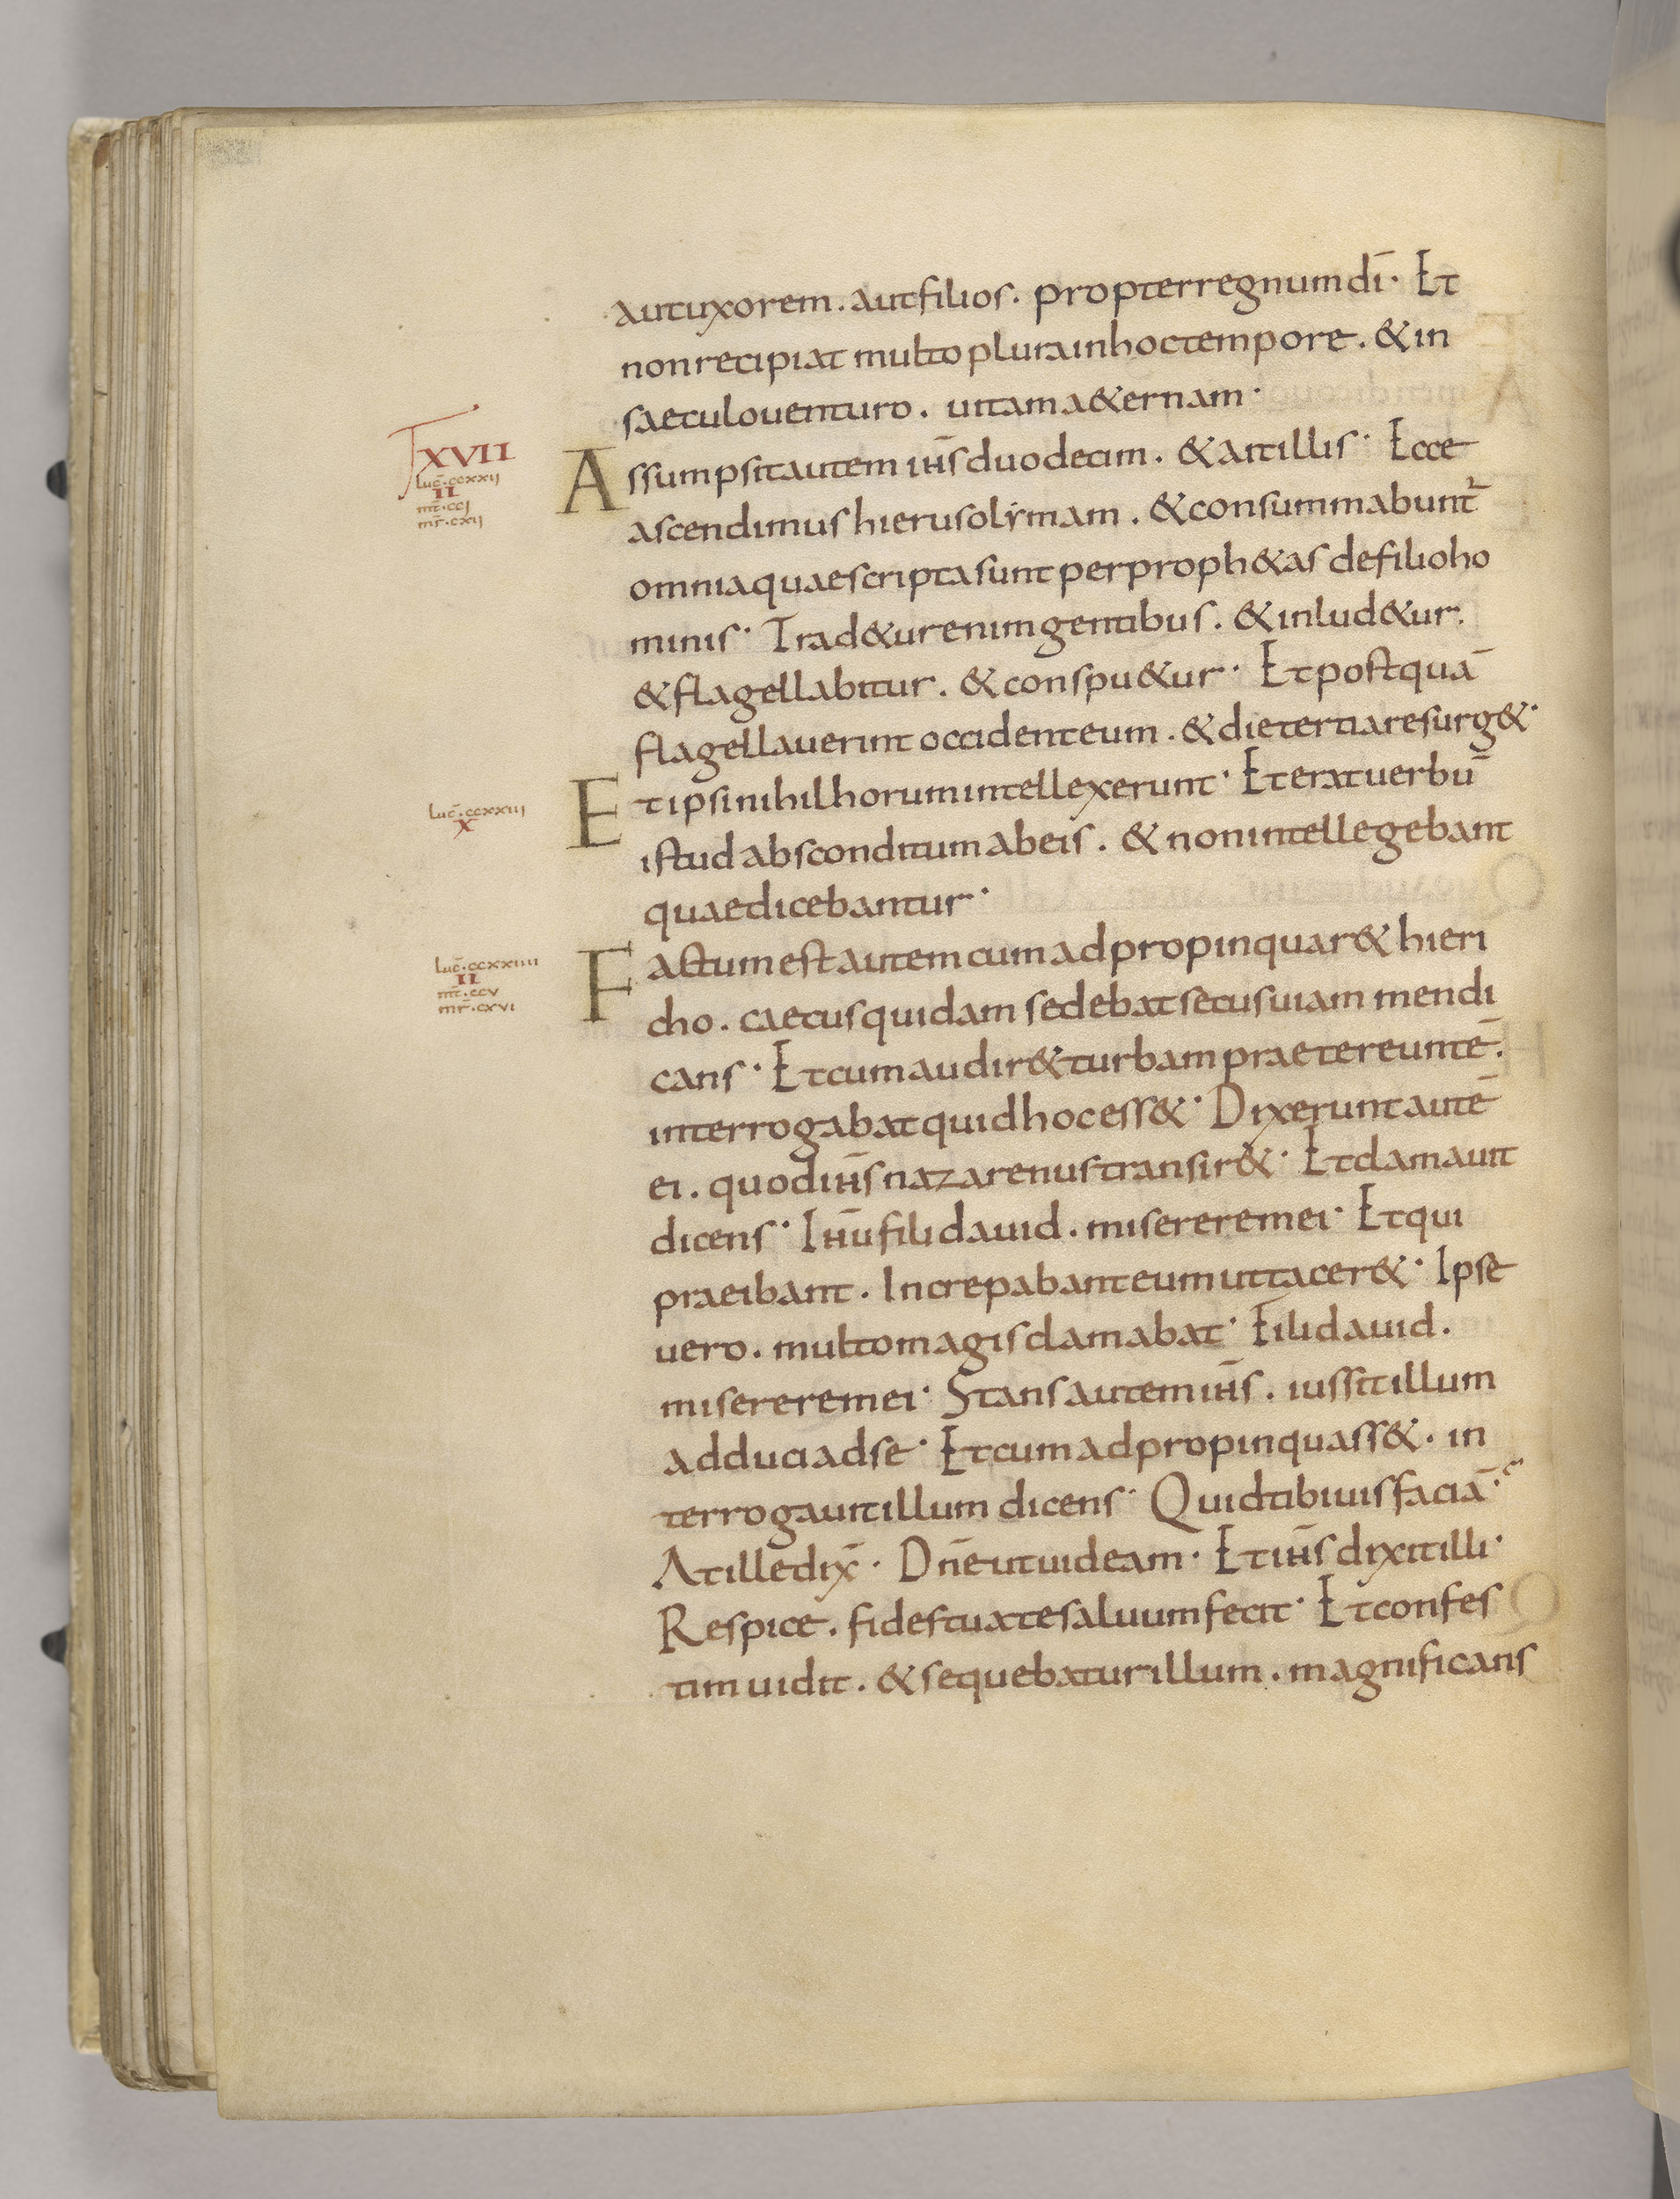 aut uxorem. aut filios. propter regnum dī· Et
non recipiat multo plura in hoc tempore. & in
saeculo venturo. uitam a&ernam·
XVII
Luc̄·ccxxij
II
mt̄·ccj
mr̄·cxij
Assumpsit autem ih̄s duodecim. & ait illis· Ecce
ascendimus hierusolẏmam. & consummabunt̄
omnia quae scripta sunt per proph&as de filio ho
minis· Trad&ur enim gentibus. & inlud&ur.
& flagellabitur. & conspu&ur· Et postquā
flagellauerint occident eum. & die tertia resurg&·
Luc̄·ccxxiii
X
Et ipsi nihil horum intellexerunt· Et erat uerbū
istud absconditum ab eis. & non intellegebant
quae dicebantur·
Luc̄·ccxxiiii
II
mt̄·ccv
mr̄·cxvi
Factum est autem cum adpropinquar& hieri
cho. caecus quidam sedebat secus uiam mendi
cans· Et cum audir& turbam praetereuntē.
interrogabat quid hoc ess&· Dixerunt autē
ei. quod ih̄s nazarenus transir&· Et clamauit
dicens· Ih̄u fili dauid. miserere mei· Et qui
praeibant. Increpabant eum ut tacer&· Ipse
uero. multo magis clamabat· Fili dauid.
miserere mei· Stans autem ih̄s. iussit illum
adduci ad se· Et cum adpropinquass&. in
terrogauit illum dicens· Quid tibi uis faciā·
At ille dix̄· Dn̄e ut uideam· Et ih̄s dixit illi·
Respice. fides tua te saluum fecit· Et confes
tim uidit. & sequebatur illum. magnificans